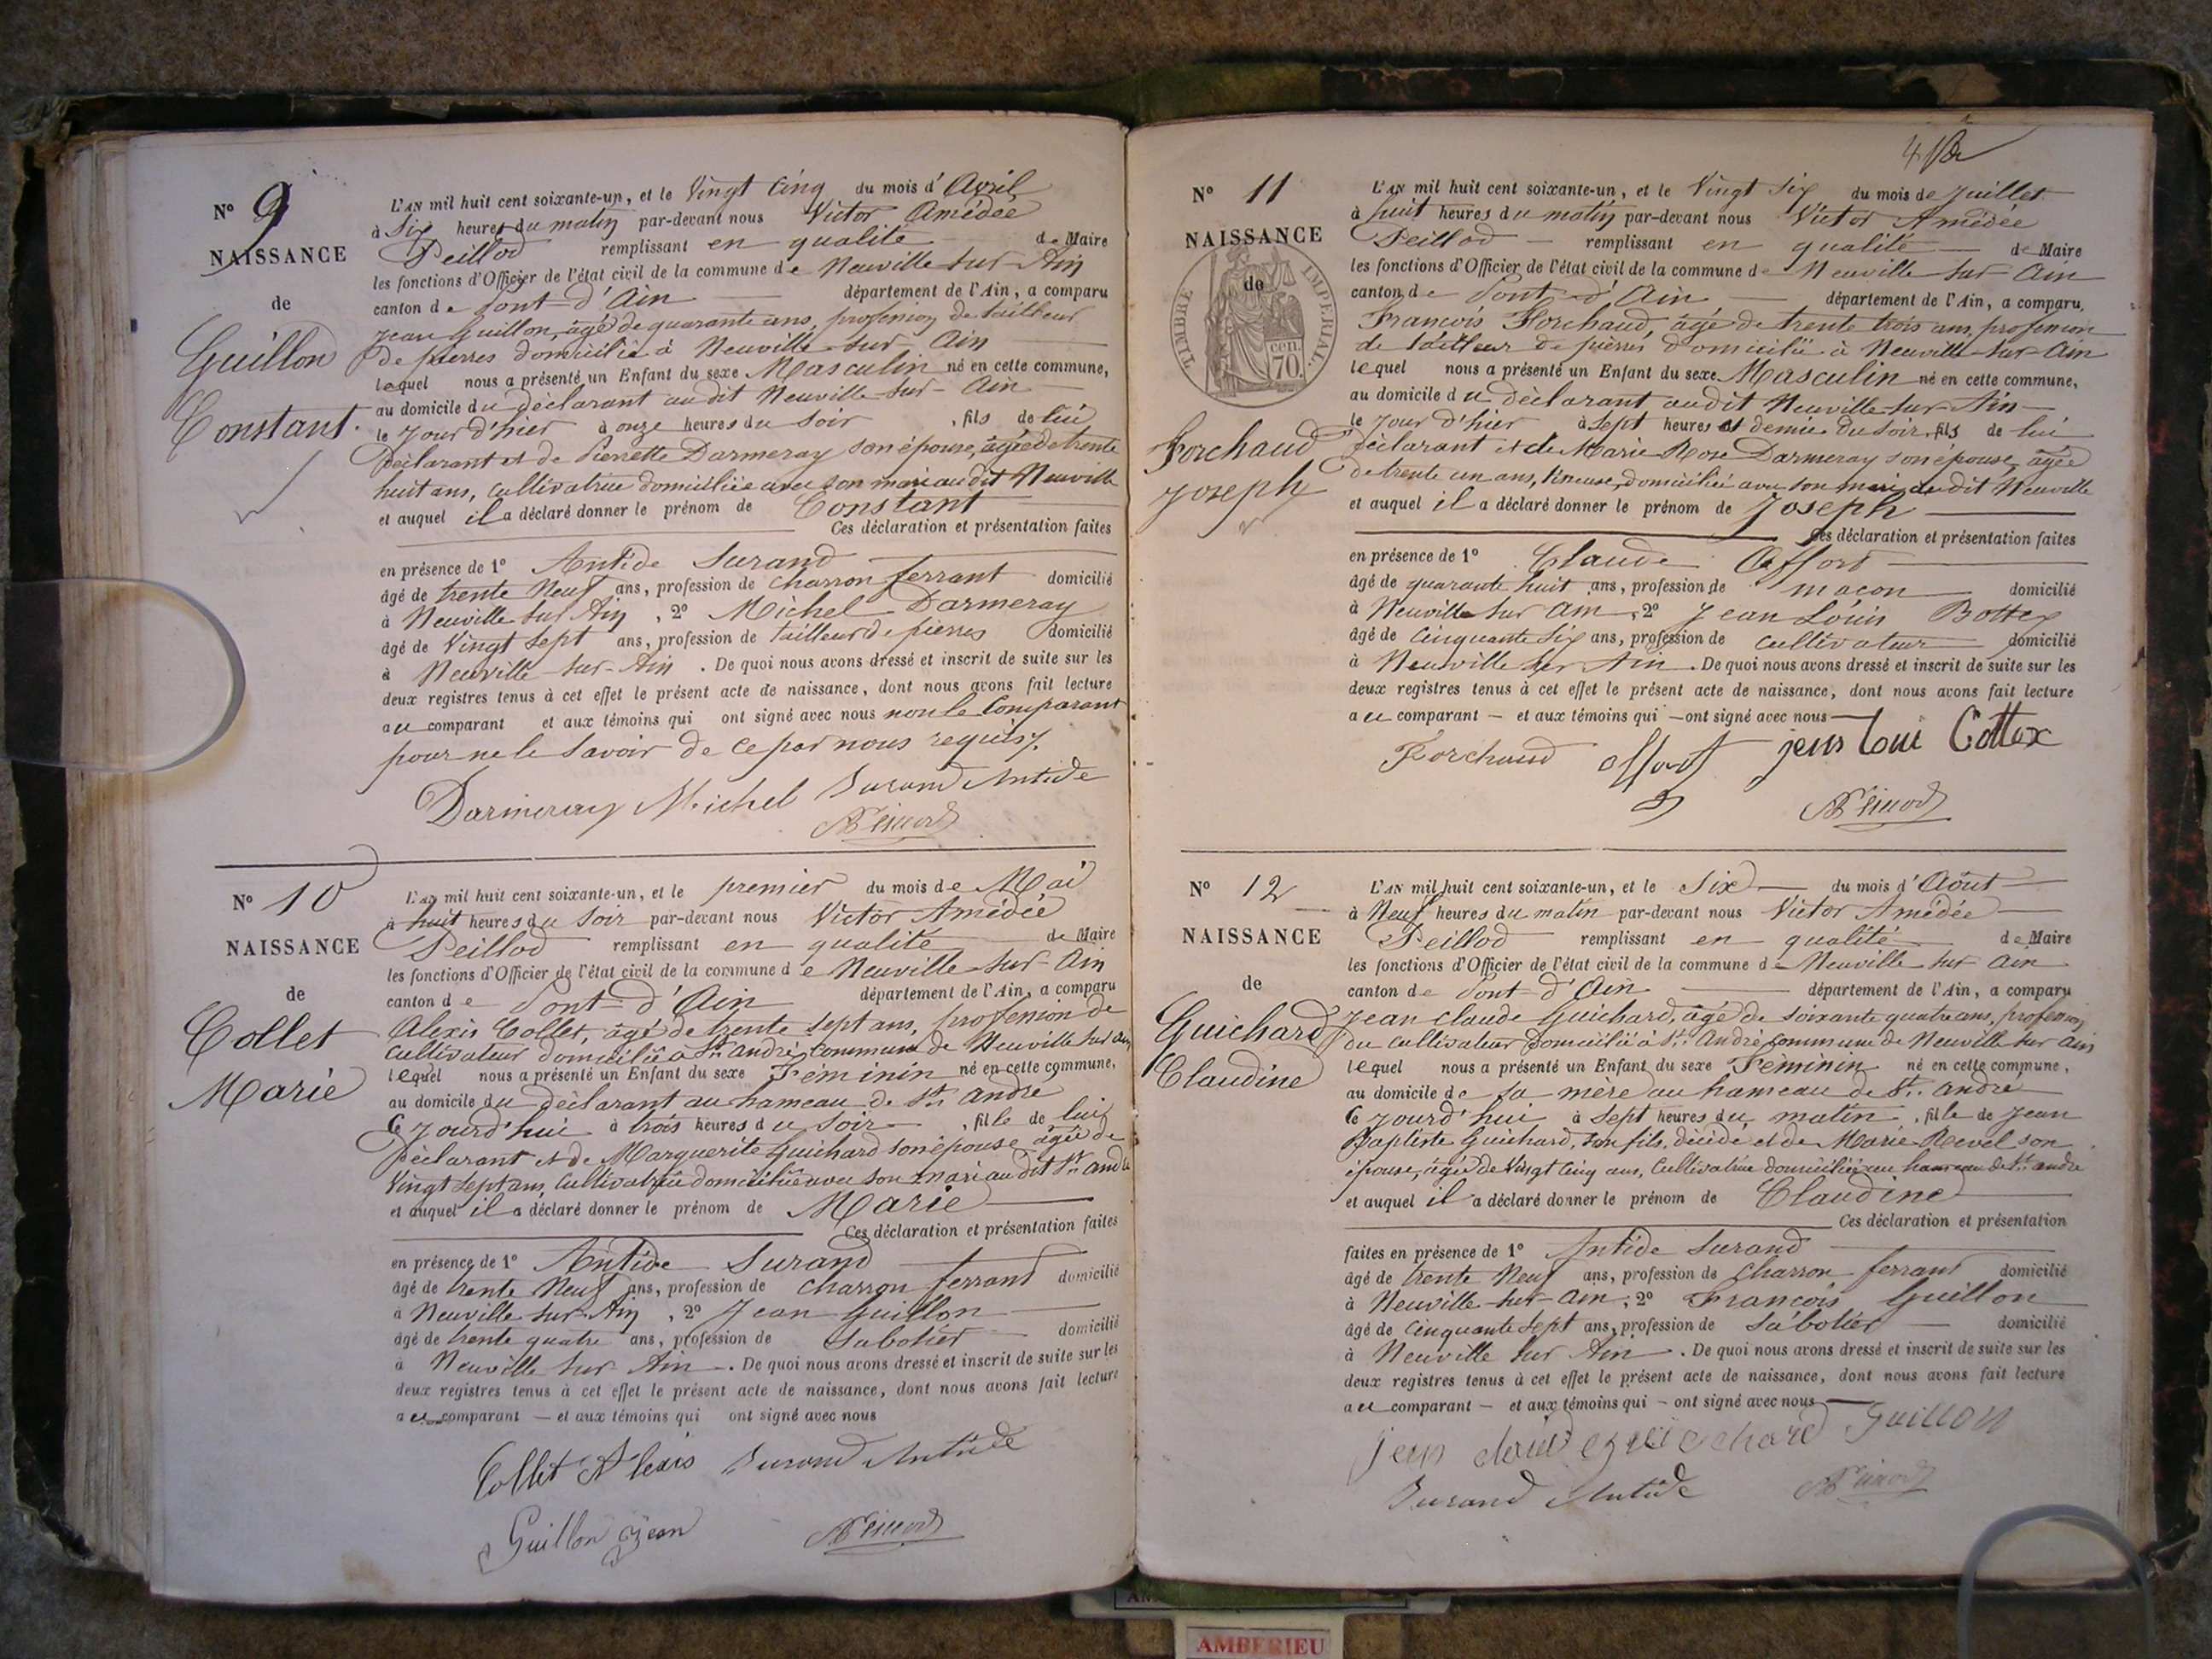 N° 9
NAISSANCE
de
Guillon
Constant.
L'AN mil huit cent soixante-un, et le Vingt Cinq du mois d'Avril
à Six heures du matin par-devant nous Victor Amédée
Peillod remplissant en qualité de Maire
les fonctions d'Officier de l'état civil de la commune de Neuville sur Ain
canton de Pont-d'Ain département de l'Ain, a comparu
Jean Guillon, âgé de quarante ans, profession de tailleur
de pierres domicilié à Neuville-sur-Ain
lequel nous a présenté un Enfant du sexe Masculin né en cette commune,
au domicile du déclarant audit Neuville-sur-Ain
le jour d'hier à onze heures du soir, fils de lui
Déclarant et de Pierrette Darmeray son épouse, âgée de trente
huit ans, cultivatrice domiciliée avec son mari audit Neuville
et auquel il a déclaré donner le prénom de Constant
Ces déclaration et présentation faites
en présence de 1° Antide Durand
âgé de trente Neuf ans, profession de charron ferrant domicilié
à Neuville sur Ain, 2° Michel Darmeray
âgé de Vingt Sept ans, profession de tailleur de pierres domicilié
à Neuville-sur-Ain. De quoi nous avons dressé et inscrit de suite sur les
deux registres tenus à cet effet le présent acte de naissance, dont nous avons fait lecture
au comparant et aux témoins qui ont signé avec nous non le Comparant
pour ne le savoir de ce par nous requis.
Darmeray Michel Durand Antide
N° 10
NAISSANCE
de
Collet
Marie
L'AN mil huit cent soixante-un, et le premier du mois de Mai
à huit heures du Soir par-devant nous Victor Amédée
Peillod remplissant en qualité de Maire
les fonctions d'Officier de l'état civil de la commune de Neuville-sur-Ain
canton de Pont-d'Ain département de l'Ain, a comparu
Alexis Collet, âgé de trente sept ans, profession de
cultivateur domicilié à St. André, commune de Neuville sur Ain
lequel nous a présenté un Enfant du sexe Féminin né en cette commune,
au domicile du déclarant au hameau de St. André
Ce jourd'hui à trois heures du Soir, fille de lui
Déclarant et de Marguerite Guichard son épouse âgée de
Vingt Sept ans, cultivatrice domiciliée avec son mari audit St. André
et auquel il a déclaré donner le prénom de Marie
Ces déclaration et présentation faites
en présence de 1° Antide Durand
âgé de trente Neuf ans, profession de charron ferrant domicilié
à Neuville sur Ain, 2° Jean Guillon
âgé de trente quatre ans, profession de Sabotier domicilié
à Neuville sur Ain. De quoi nous avons dressé et inscrit de suite sur les
deux registres tenus à cet effet le présent acte de naissance, dont nous avons fait lecture
au comparant — et aux témoins qui ont signé avec nous
Collet Alexis Durand Antide
Guillon Jean
N° 11
NAISSANCE
de
TIMBRE IMPERIAL.
cen. 70.
Forchaud
Joseph
L'AN mil huit cent soixante-un, et le Vingt Six du mois de Juillet
à huit heures du matin par-devant nous Victor Amédée
Peillod — remplissant en qualité — de Maire
les fonctions d'Officier de l'état civil de la commune de Neuville sur Ain
canton de Pont-d'Ain département de l'Ain, a comparu,
François Forchaud, âgé de trente trois ans, profession
de tailleur de pierres domicilié à Neuville-sur-Ain
lequel nous a présenté un Enfant du sexe Masculin né en cette commune,
au domicile du déclarant audit Neuville-sur-Ain
le jour d'hier à Sept heures et demie du Soir, fils de lui
déclarant et de Marie Rose Darmeray son épouse âgée
de trente un ans, domiciliée avec son mari audit Neuville
et auquel il a déclaré donner le prénom de Joseph
Ces déclaration et présentation faites
en présence de 1° Claude Affort
âgé de quarante huit ans, profession de maçon domicilié
à Neuville sur Ain, 2° Jean Louis Bottex
âgé de Cinquante Six ans, profession de cultivateur domicilié
à Neuville sur Ain. De quoi nous avons dressé et inscrit de suite sur les
deux registres tenus à cet effet le présent acte de naissance, dont nous avons fait lecture
au comparant — et aux témoins qui — ont signé avec nous —
Forchaud affort jean loui Bottex
N° 12
NAISSANCE
de
Guichard
Claudine
L'AN mil huit cent soixante-un, et le Six — du mois d'Août
à Neuf heures du matin par-devant nous Victor Amédée
Peillod remplissant en qualité de Maire
les fonctions d'Officier de l'état civil de la commune de Neuville sur Ain
canton de Pont-d'Ain département de l'Ain, a comparu
Jean Claude Guichard, âgé de soixante quatre ans, profession
de cultivateur domicilié à St. André commune de Neuville sur Ain
lequel nous a présenté un Enfant du sexe Féminin né en cette commune,
au domicile de sa mère au hameau de St. André
Ce jourd'hui à Sept heures du matin, fille de Jean
Baptiste Guichard, son fils, décédé et de Marie Revel son
épouse, âgée de Vingt Cinq ans, Cultivatrice domiciliée au hameau de St. André
et auquel il a déclaré donner le prénom de Claudine
Ces déclaration et présentation
faites en présence de 1° Antide Durand
âgé de trente Neuf ans, profession de Charron ferrant domicilié
à Neuville-sur-Ain; 2° François Guillon
âgé de Cinquante Sept ans, profession de Sabotier — domicilié
à Neuville sur Ain. De quoi nous avons dressé et inscrit de suite sur les
deux registres tenus à cet effet le présent acte de naissance, dont nous avons fait lecture
au comparant — et aux témoins qui — ont signé avec nous —
jean claude guichard Guillon
Durand Antide
AMBERIEU